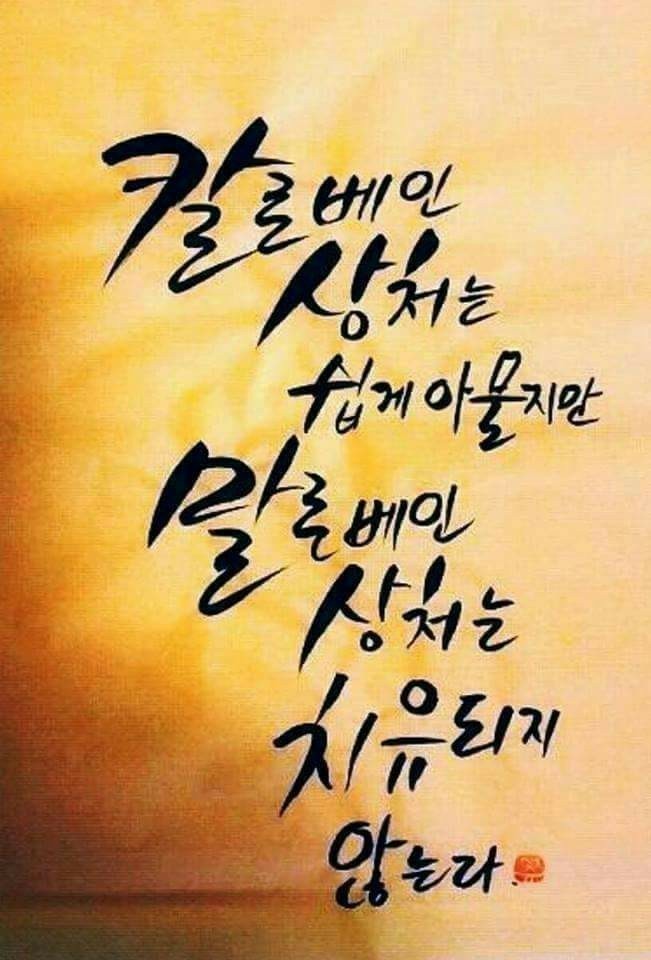 칼로베인
상처는
쉽게 아물지만
말로베인
상처는
치유되지
않는다